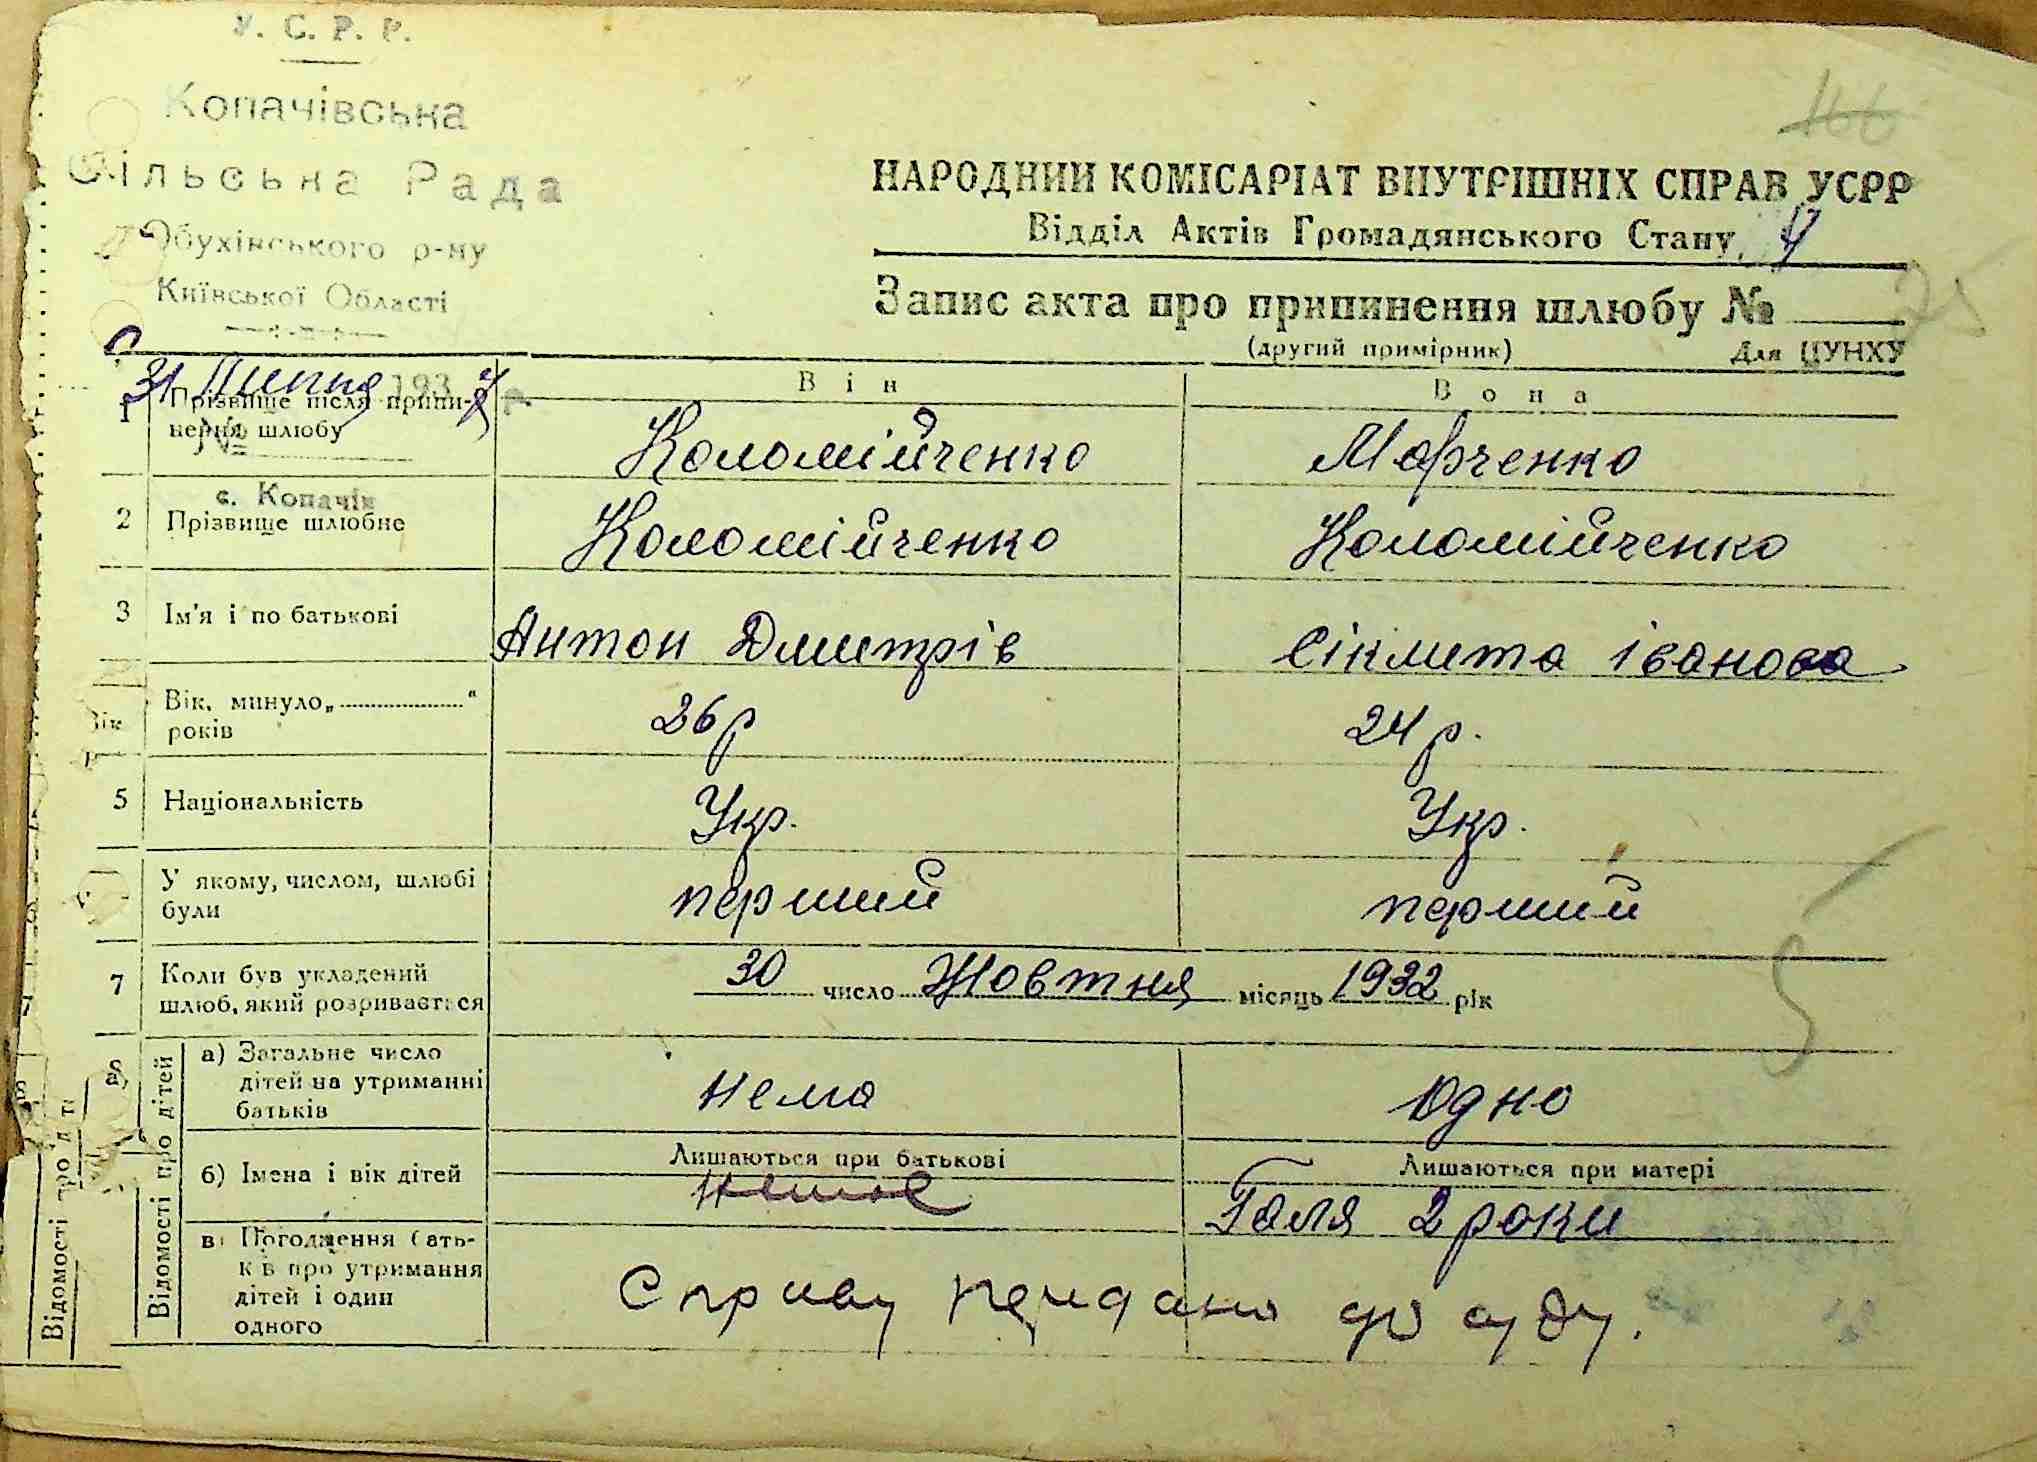 У. С. Р. Р.
Копачівська
Сільська Рада
Обухівського р-ну
Київської Області
31 Липня 1937 р.
№
с. Копачів
166
НАРОДНИЙ КОМІСАРІАТ ВНУТРІШНІХ СПРАВ УСРР
Відділ Актів Громадянського Стану
4
Запис акта про припинення шлюбу №
75
(другий примірник) Для ЦУНХУ
Він Вона
1 Прізвище після припинення шлюбу Коломійченко Марченко
2 Прізвище шлюбне Коломійченко Коломійченко
3 Ім'я і по батькові Антон Дмитрів Сіклита іванова
Вік, минуло „ “
років 26 р 24 р.
5 Національність Укр. Укр.
У якому, числом, шлюбі
були перший перший
7 Коли був укладений
шлюб, який розривається 30 число Жовтня місяць 1932 рік
Відомості про дітей
а) Загальне число
дітей на утриманні
батьків нема Одно
Лишаються при батькові Лишаються при матері
б) Імена і вік дітей Галя 2 роки
в) Погодження батьків про утримання
дітей і один
одного
Справу передано до суду.